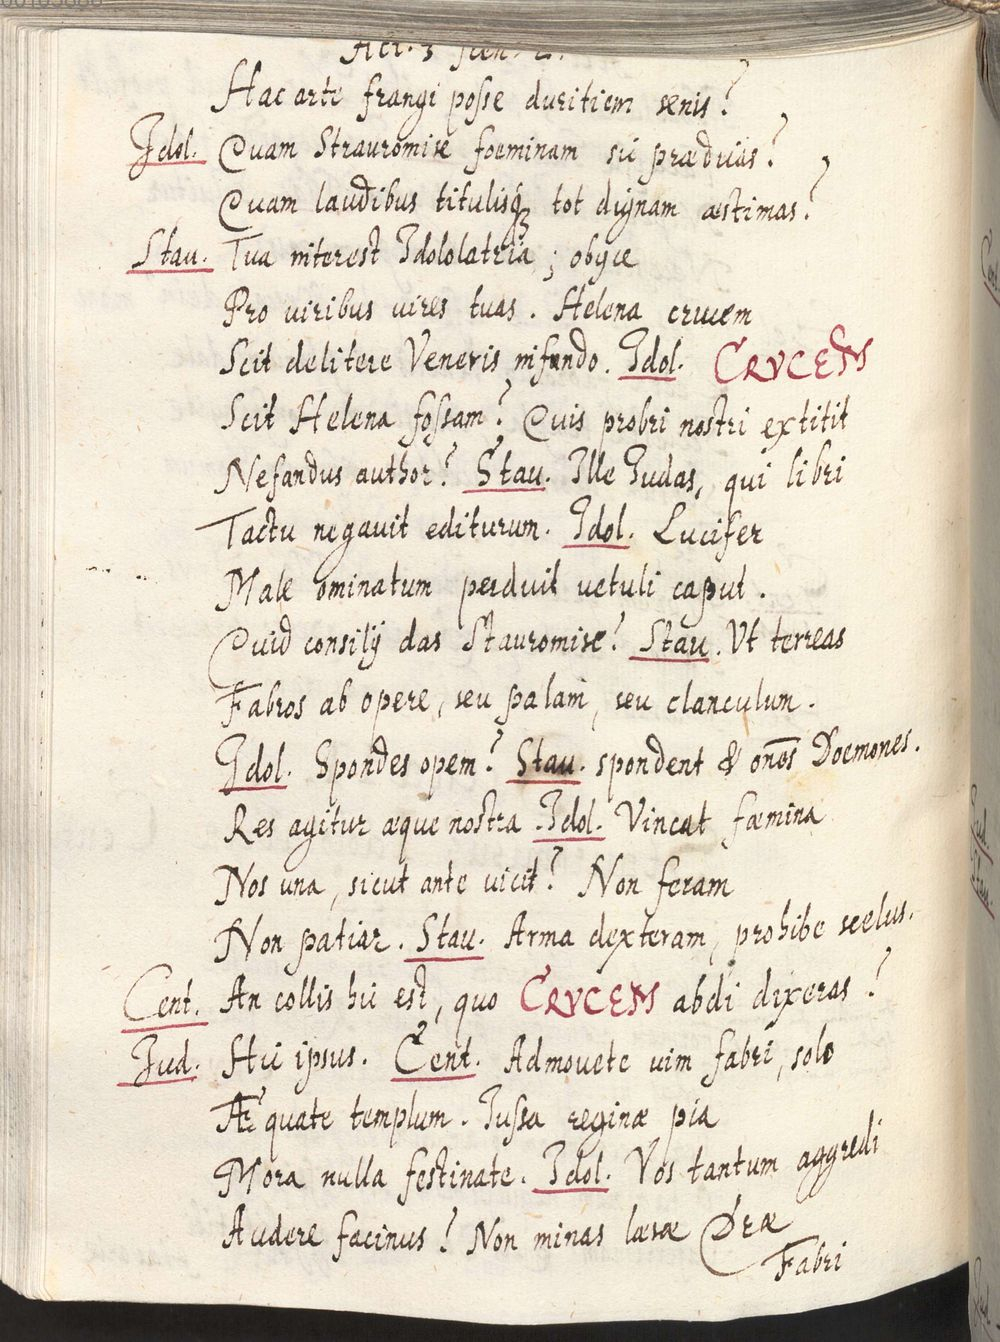 Act. 3 Scen. 2.
Hac arte frangi posse duritiem senis?
Idol. Quam Stauromise foeminam sic praeduras?
Quam laudibus titulisq₃ tot dignam aestimas?
Stau. Tua interest Idololatria; obijce
Pro viribus vires tuas. Helena crucem
Scit delitere Veneris infando. Idol. CRVCEM
Scit Helena fossam? Quis probri nostri extitit
Nefandus author? Stau. Ille Iudas, qui libri
Tactu negauit editurum. Idol. Lucifer
Male ominatum perduit uetuli caput.
Quid consilij das Stauromise? Stau. Vt terreas
Fabros ab opere, seu palam, seu clanculum.
Idol. Spondes opem? Stau. spondent & oñes Doemones.
Res agitur aeque nostra. Idol. Vincat faemina
Nos una, sicut ante uicit? Non feram
Non patiar. Stau. Arma dexteram, prohibe scelus.
Cent. An collis hic est, quo CRVCEM abdi dixeras?
Jud. Hic ipsus. Cent. Admouete uim fabri, solo
AEquate templum. Iussa reginae pia
Mora nulla festinate. Idol. Vos tantum aggredi
Audere facinus? Non minas laesae Deae
Fabri